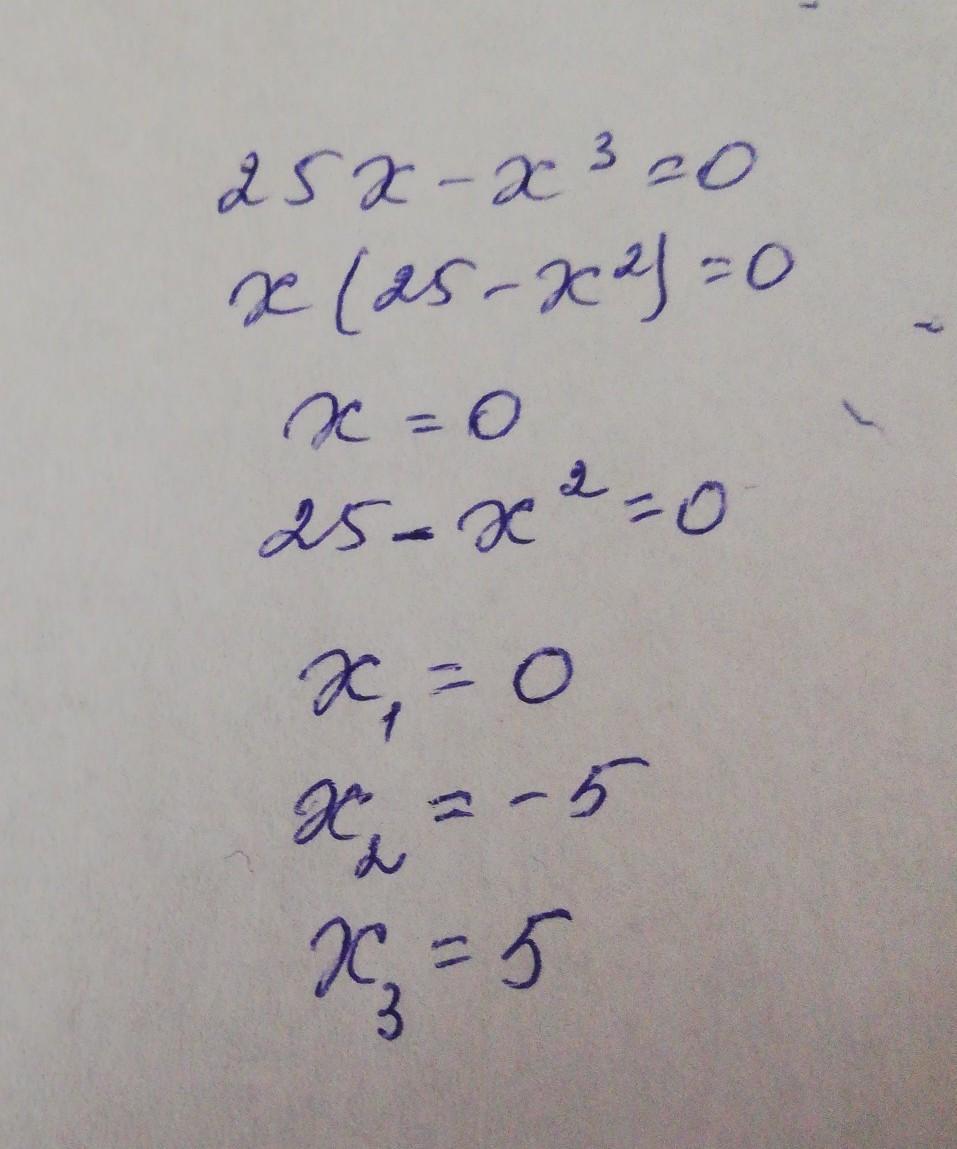 25x - x³ = 0
x(25 - x²) = 0
x = 0
25 - x² = 0
x₁ = 0
x₂ = -5
x₃ = 5